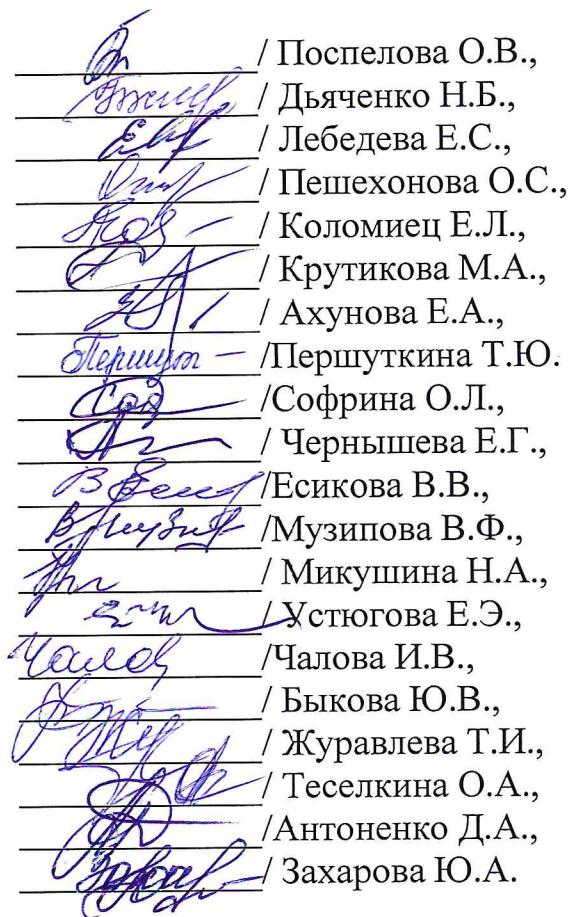 / Поспелова О.В.,
/ Дьяченко Н.Б.,
/ Лебедева Е.С.,
/ Пешехонова О.С.,
/ Коломиец Е.Л.,
/ Крутикова М.А.,
/ Ахунова Е.А.,
/Першуткина Т.Ю.
/Софрина О.Л.,
/ Чернышева Е.Г.,
/Есикова В.В.,
/Музипова В.Ф.,
/ Микушина Н.А.,
/ Устюгова Е.Э.,
/Чалова И.В.,
/ Быкова Ю.В.,
/ Журавлева Т.И.,
/ Теселкина О.А.,
/Антоненко Д.А.,
/ Захарова Ю.А.